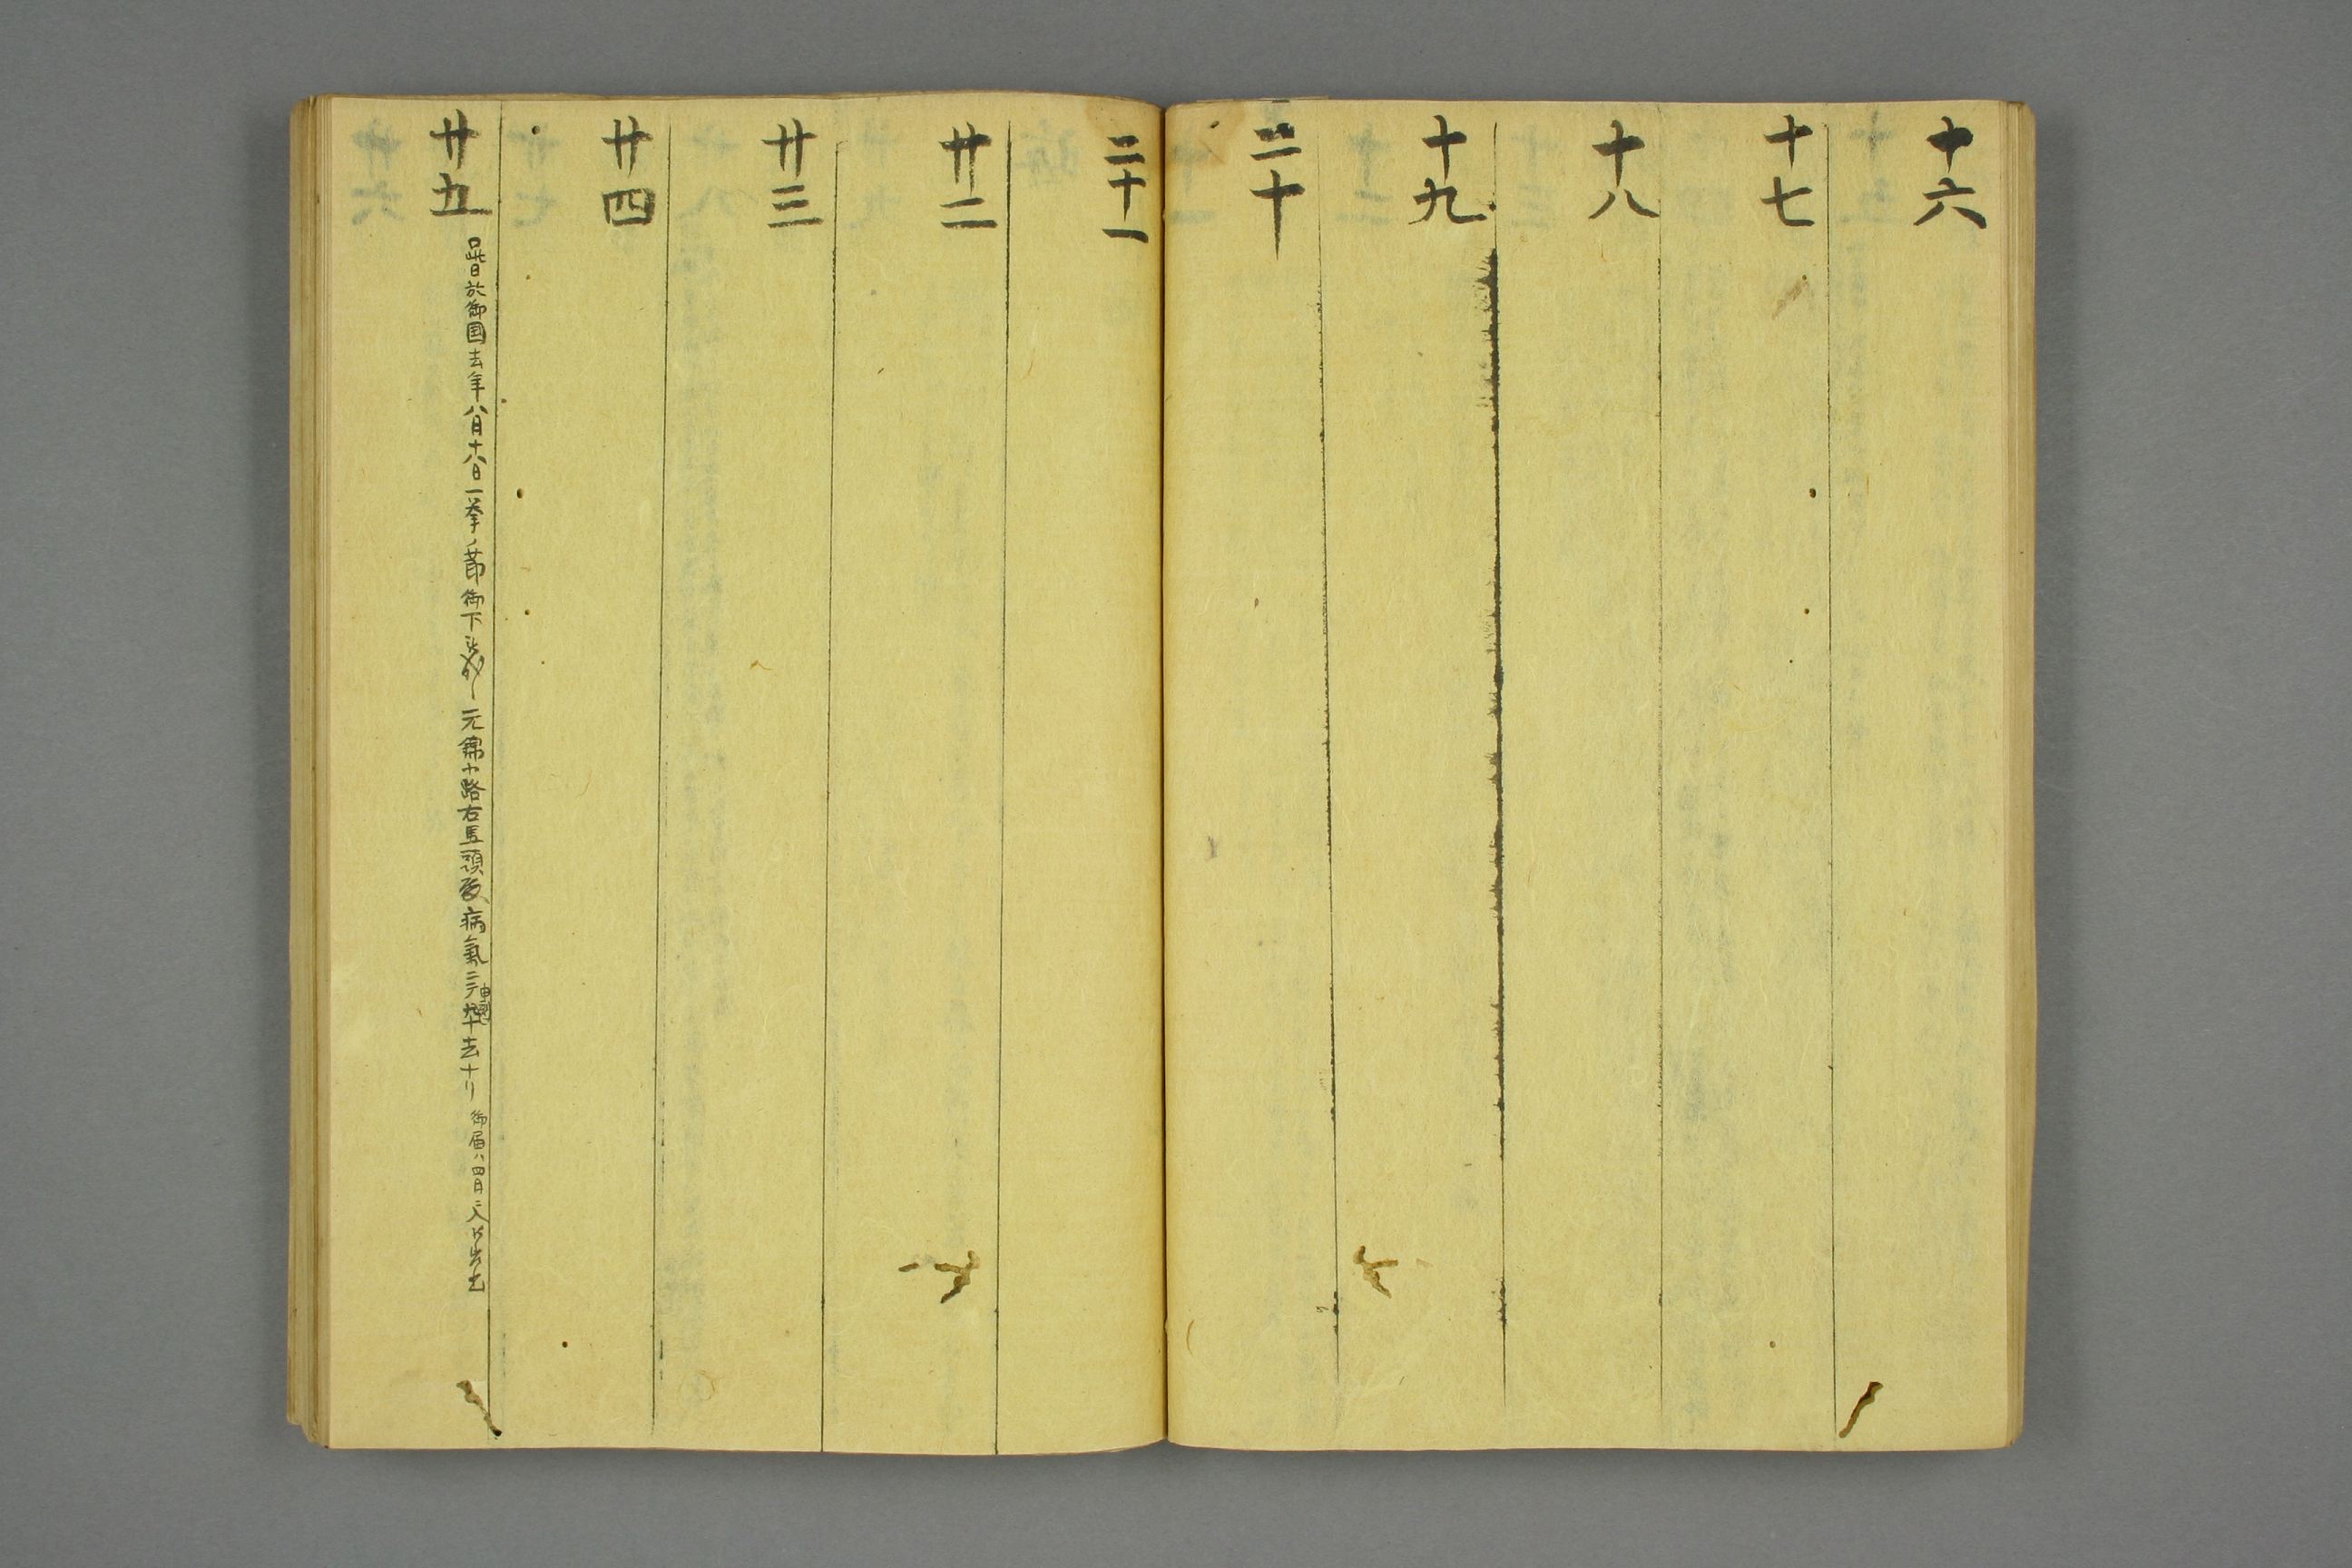 十六
十七
十八
十九
二十
二十一
廿二
廿三
廿四
廿五 此日於御国去年八月十八日一挙ノ節御下 元錦小路右馬頭殿病氣ニテ 去ナリ 御届ハ四月